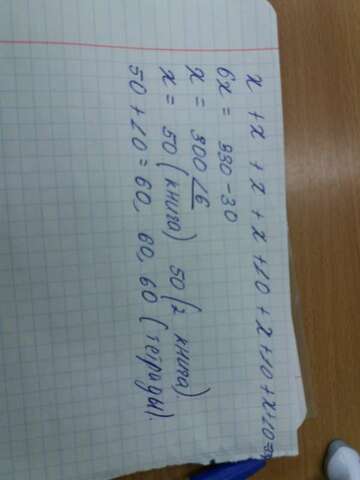 x + x + x + x + 10 + x + 10 + x + 10 =
6x = 330 - 30
x = 300 ∠6
x = 50 (книга) 50 (2 книга)
50 + 10 = 60, 60, 60 (тетрады).